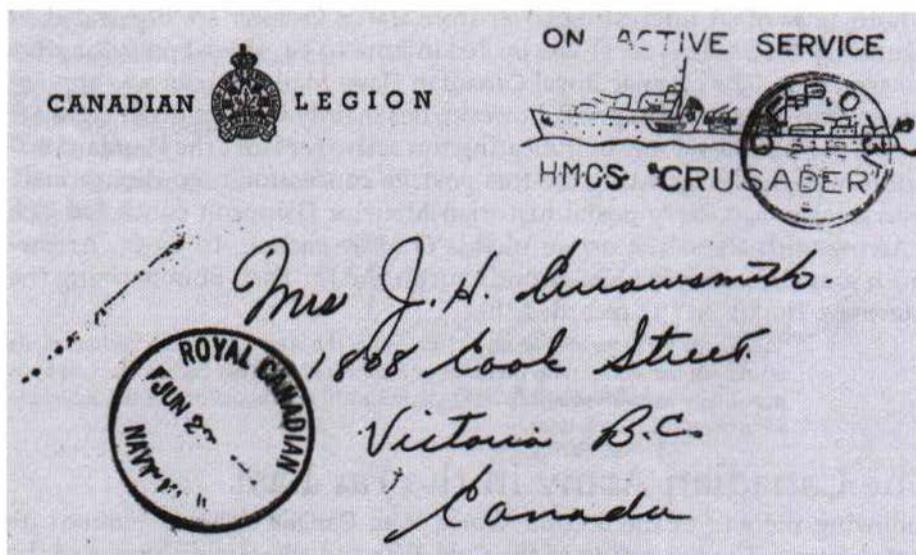 CANADIAN LEGION
ON ACTIVE SERVICE
H.M.C.S. "CRUSADER"
Mrs J. H. Arrowsmith
1808 Cook Street
Victoria B.C.
Canada
ROYAL CANADIAN
JUN 2
NAVY